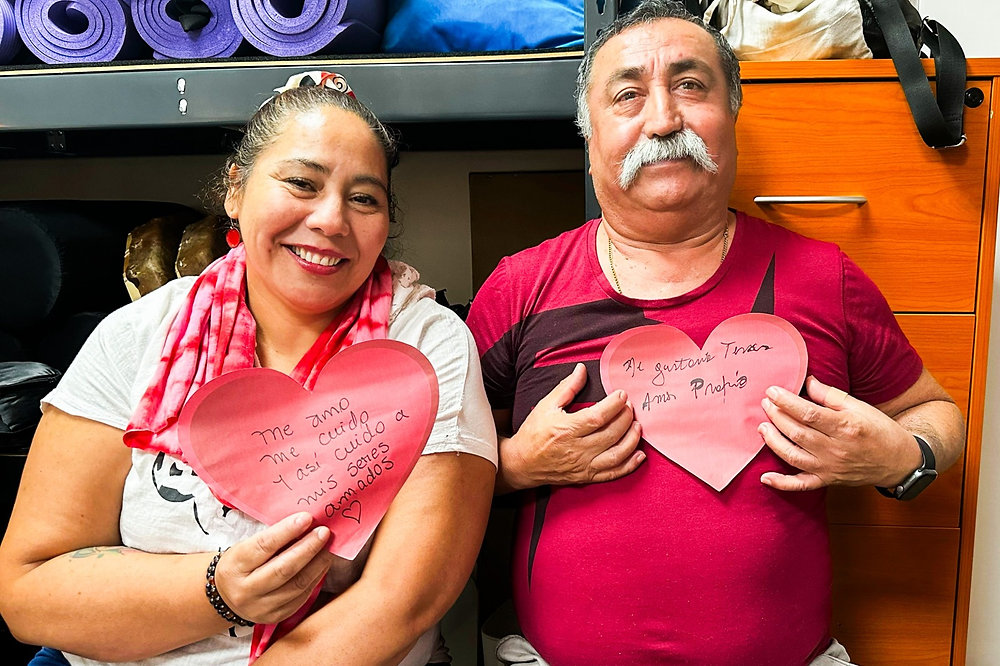 me amo
me cuido
Y así cuido a
mis seres
amados
Me gustaria Tener
Amor Propio